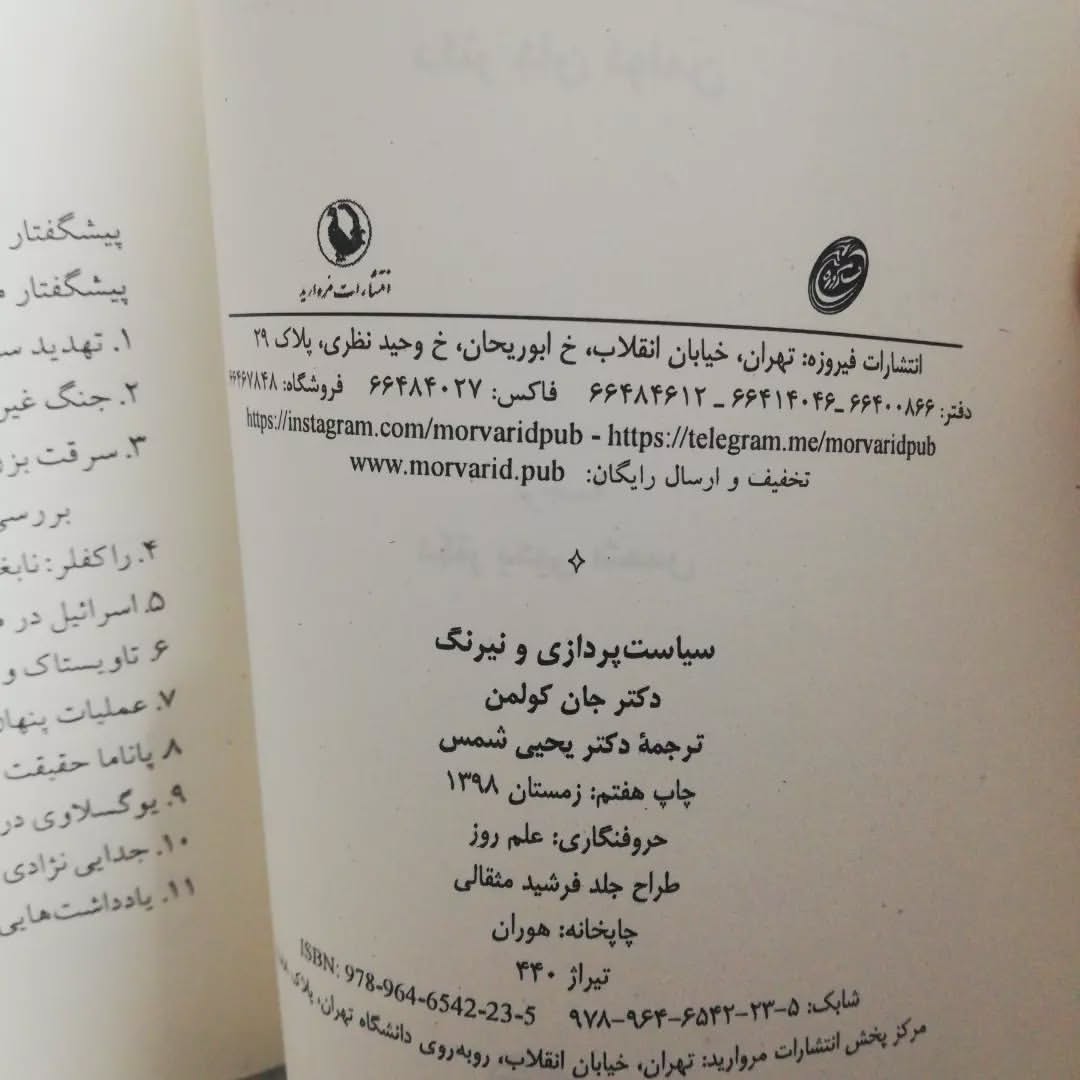 انتشارات مروارید
فیروزه
انتشارات فیروزه: تهران، خیابان انقلاب، خ ابوریحان، خ وحید نظری، پلاک ۲۹
دفتر: ۶۶۴۰۰۸۶۶ ـ ۶۶۴۱۴۰۴۶ ـ ۶۶۴۸۴۶۱۲ فاکس: ۶۶۴۸۴۰۲۷ فروشگاه: ۶۶۴۶۷۸۴۸
https://instagram.com/morvaridpub - https://telegram.me/morvaridpub
تخفیف و ارسال رایگان: www.morvarid.pub
سیاست‌پردازی و نیرنگ
دکتر جان کولمن
ترجمهٔ دکتر یحیی شمس
چاپ هفتم: زمستان ۱۳۹۸
حروفنگاری: علم روز
طراح جلد فرشید مثقالی
چاپخانه: هوران
تیراژ ۴۴۰
شابک: ۵-۲۳-۶۵۴۲-۹۶۴-۹۷۸ ISBN: 978-964-6542-23-5
مرکز پخش انتشارات مروارید: تهران، خیابان انقلاب، روبه‌روی دانشگاه تهران، پلاک
پیشگفتار
پیشگفتار
۱. تهدید
۲. جنگ غیر
۳. سرقت
بررسی
۴. راکفلر: نابغ
۵. اسرائیل در
۶. تاویستاک و
۷. عملیات پنهان
۸. پاناما حقیقت
۹. یوگسلاوی در
۱۰. جدایی نژادی
۱۱. یادداشت‌هایی